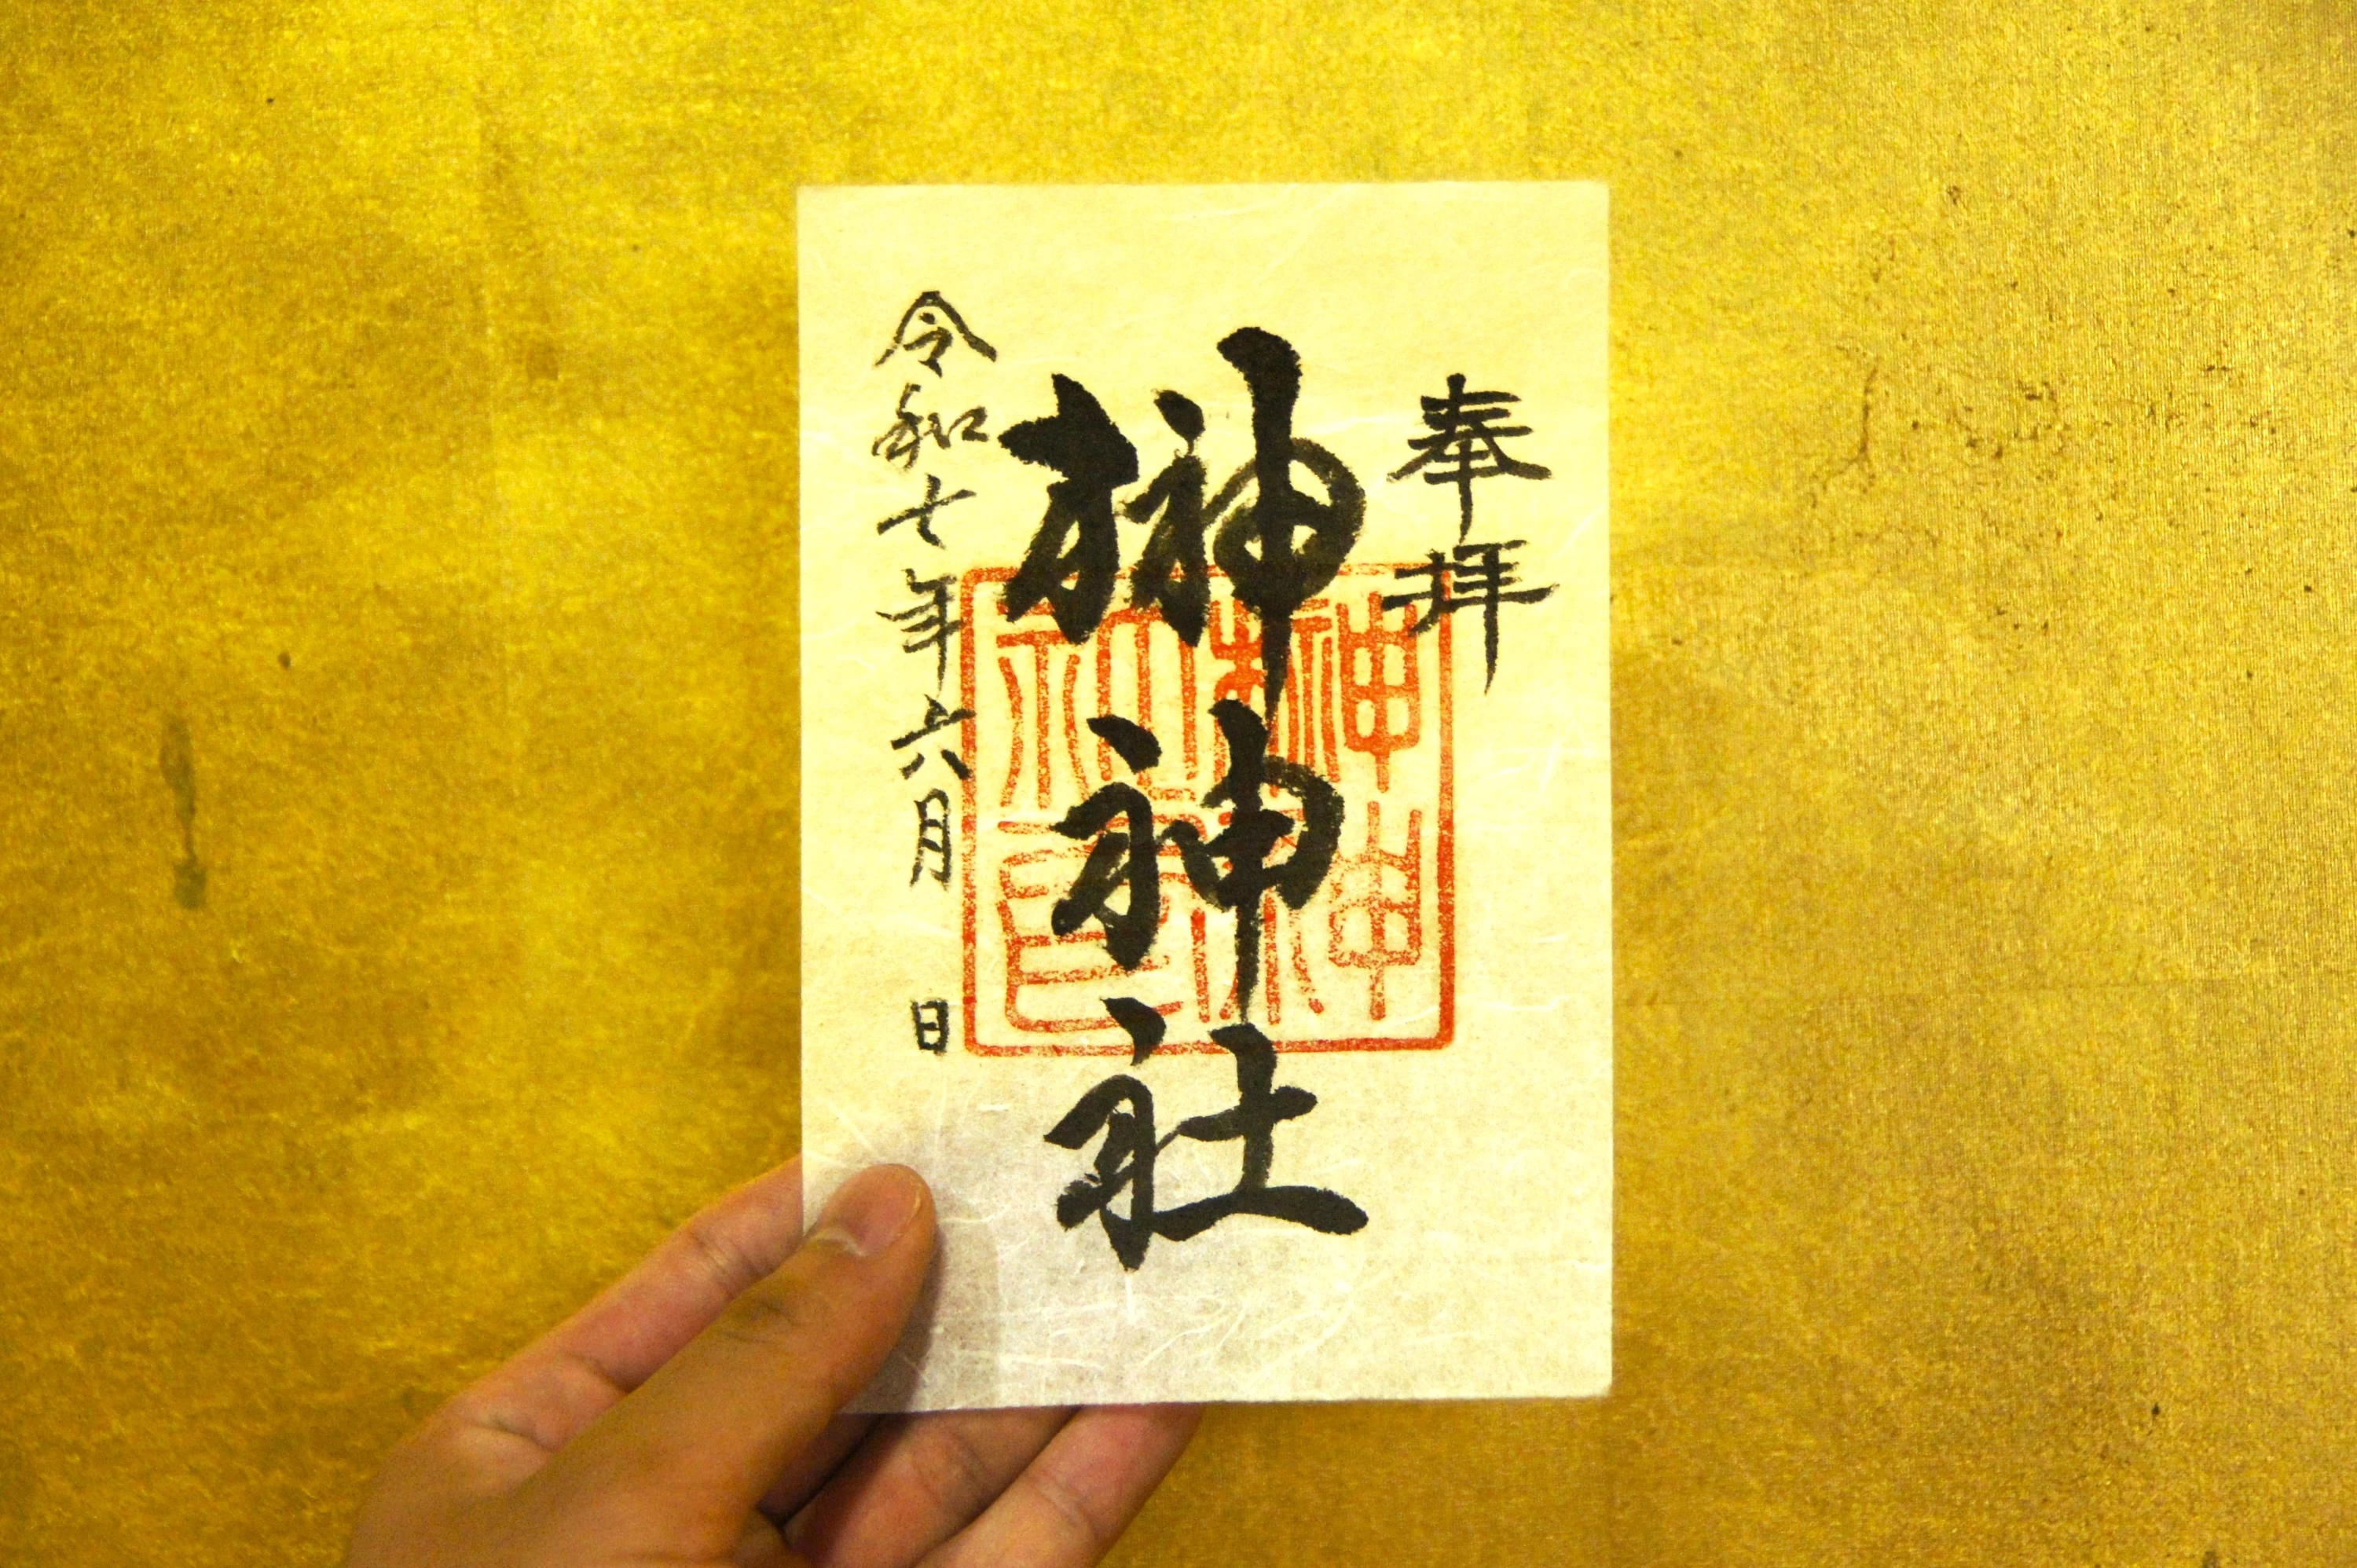 奉拝
榊神社
令和七年六月 日
榊神社神璽